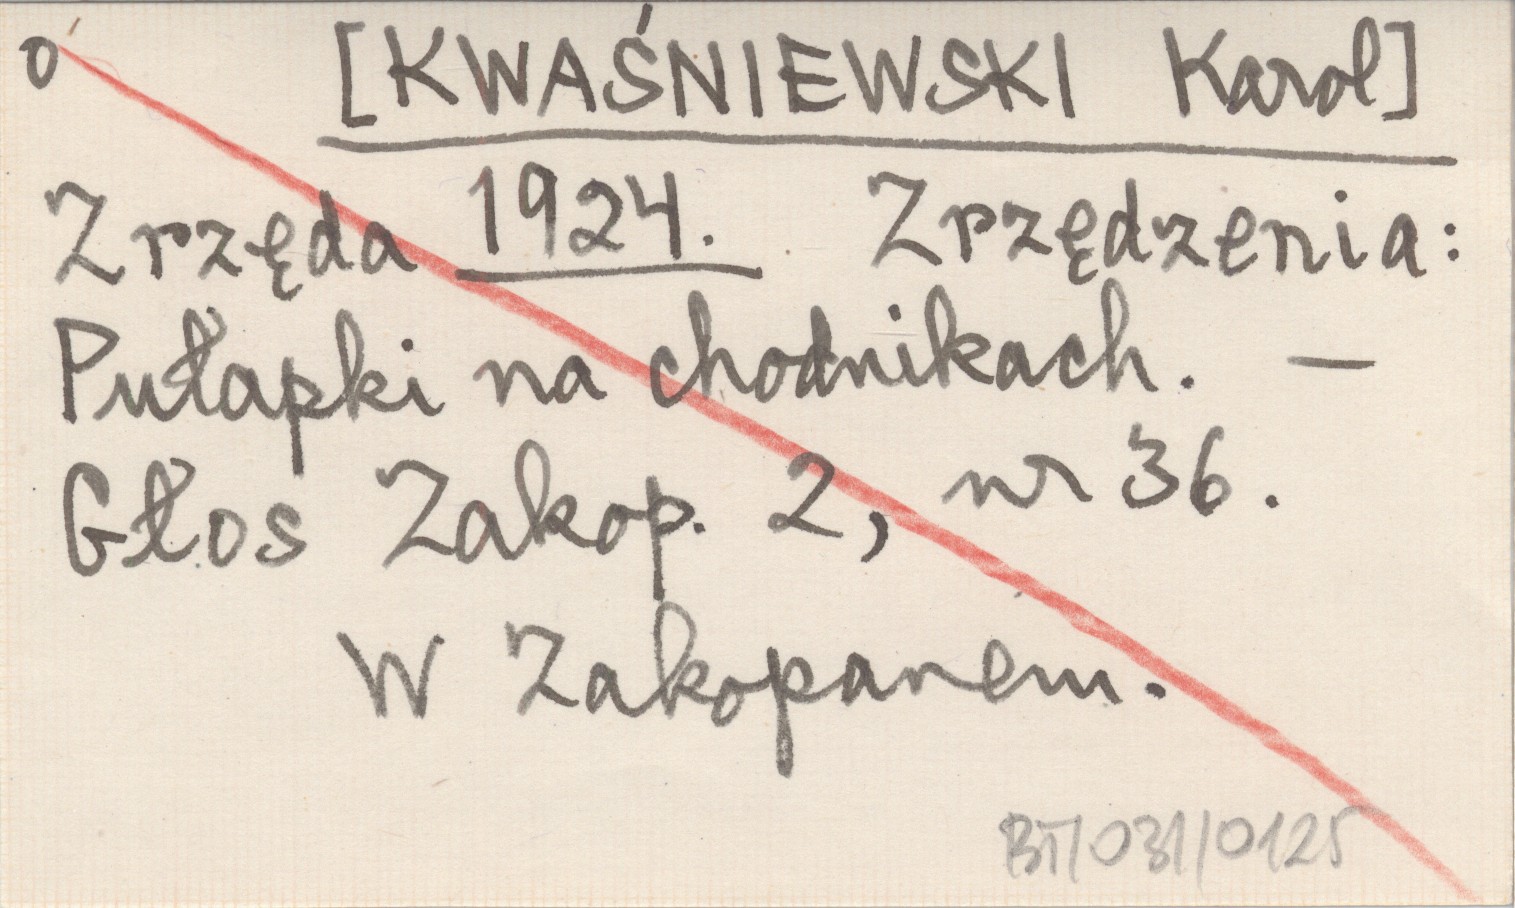 o [KWAŚNIEWSKI Karol]
Zrzęda 1924. Zrzędzenia:
Pułapki na chodnikach. —
Głos Zakop. 2, nr 36.
W Zakopanem.
BT/031/0125